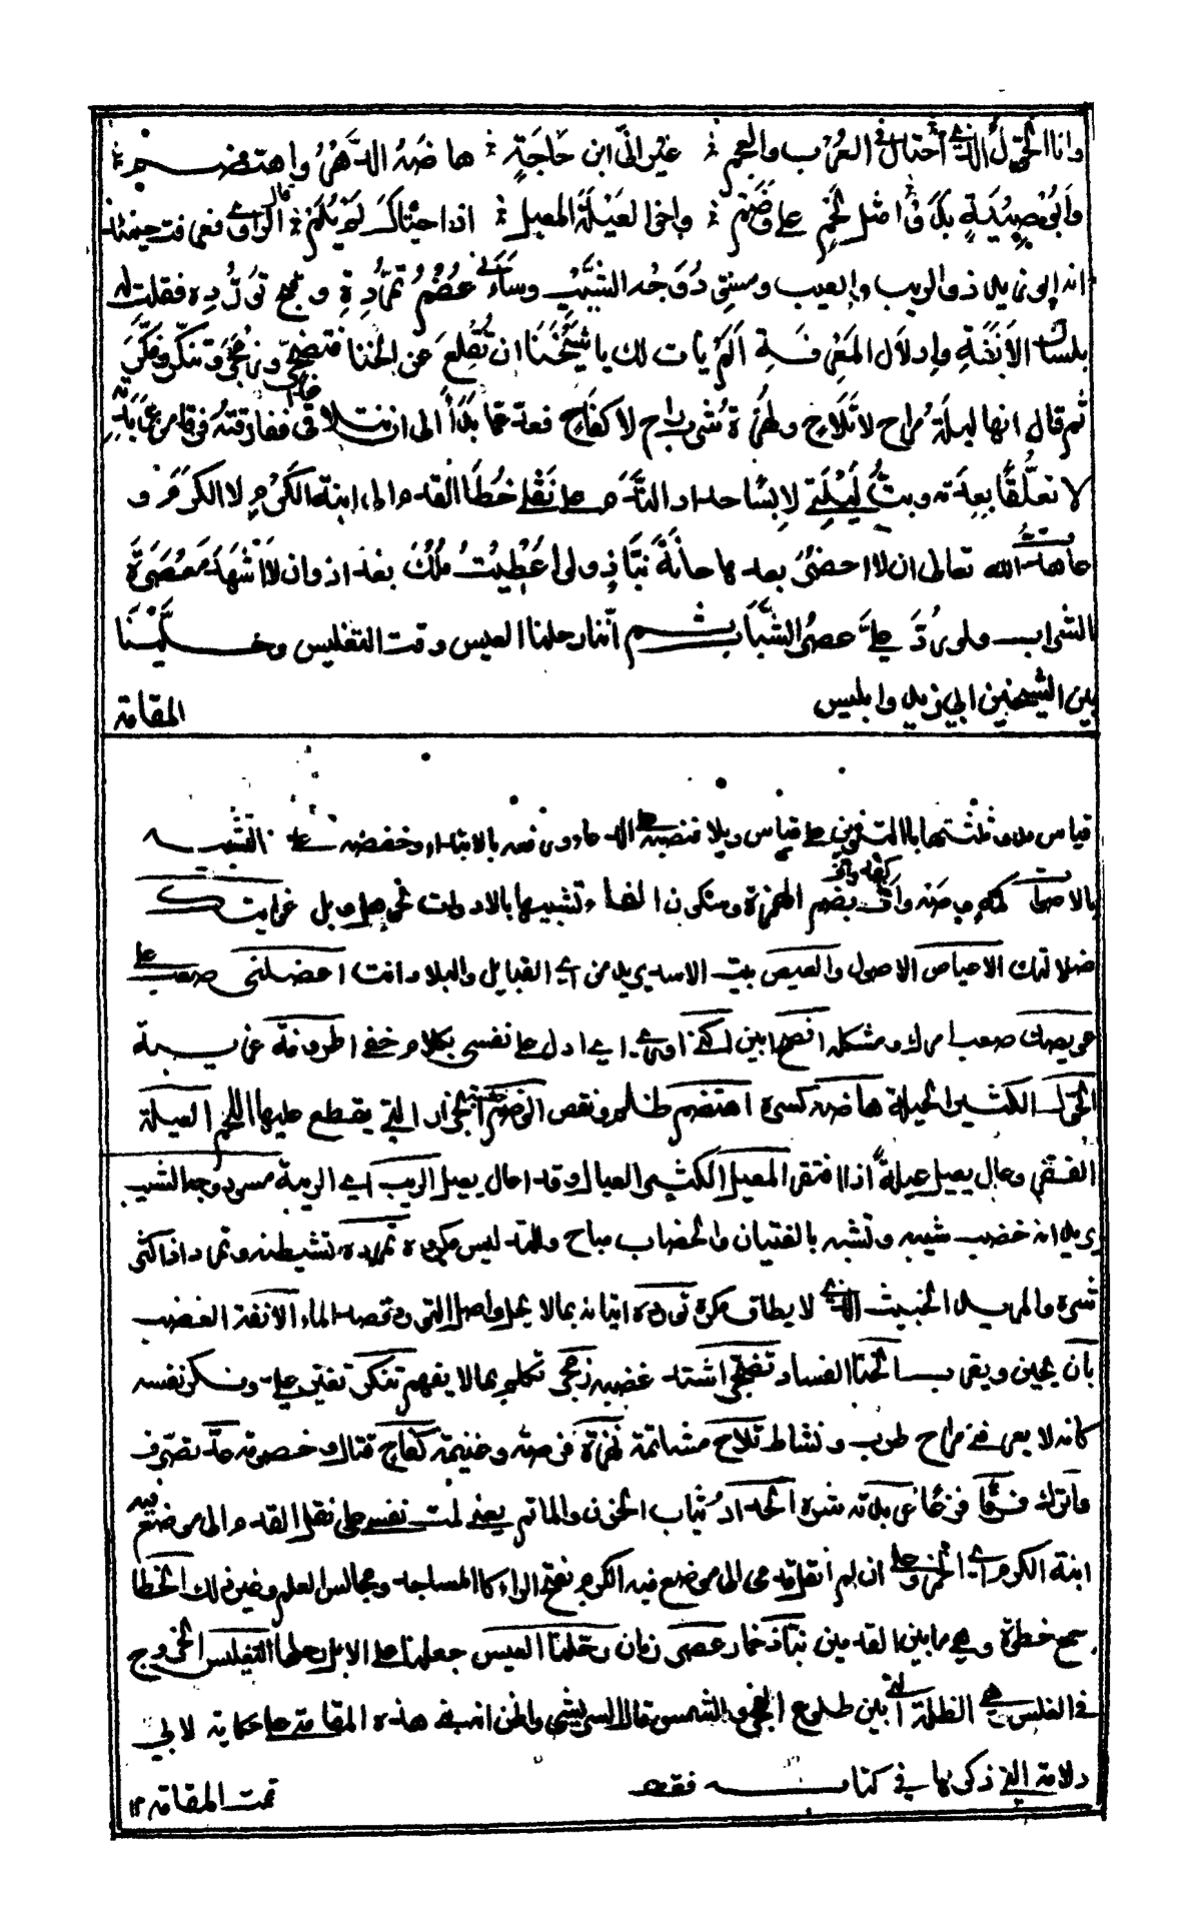 وانا الحُوَّلُ الذي احْتال في العُرْب والعجم ؞ غَيْرَ انّي ابن حَاجَةٍ ؞ هاضَهُ الدَّهْرُ واهتضم ؞
وابُو صِبْيَةٍ بَدَوْا مثل لحْمٍ على وَضَمْ ؞ واخو العَيْلَةِ المعيل ؞ اذا احتال لم يُلَمْ ؞ قال الراوي فعرفت حينئذ
انه ابو زيد ذو الريب والعيب ومسَوِّدُ وَجْه الشَّيْب وساءَني عُظْمُ تمرُّدِهِ وقبح تَوَرُّدِهِ فقلت له
بلسان الأنَفَةِ وادلال المَعْرِفَةِ الَمْ يأن لك يا شَيْخَنَا ان تُقْلِعَ عن الخنا فتضجّر وزمْجَرَ وتنكّر وفكّر
ثم قال انها ليلةُ مراح لا تَلَاحٍ ونُهْزَة شُرْب راح لا كفاح فعدّ عمّا بدا الى ان نتلاقى غدا ففارقته فرقا من عربدته
لا تعلُّقًا بعدته وبتُّ لَيْلَتي لابسًا حداد النَّدَم على نَقْلي خُطَا القدم الى ابنة الكَرْمِ لا الكَرَم و
عاهدت الله تعالى ان لا احضُرَ بعدها حانَةَ نَبَّاذٍ ولو اعْطِيتُ مُلْكَ بغداذ وان لا اشْهَدَ مَعْصَرَةَ
الشراب ولو رُدَّ عليَّ عصر الشَّبَاب ثم اننا رحلنا العيس وقت التغليس وخلَّيْنَا
بين الشيخين ابي زيد وابليس
المقامة
ضلا لذلك الاعياص الاصول والعيص بيت الاسد يريد من اي القبايل والبلاد انت اعضلني صعب على
عويصك صعب امرك ومشكله افصح ابين لكني اوري اي ادل على نفسي بكلام خفي اطروفة غريبة
الحول الكثير الحيلة هاضه كسره اهتضم ظلم ونقص الوضم خشبة الجزار التي يقطع عليها اللحم العيلة
الفقر وعال يعيل عيلةً اذا افتقر المعيل الكثير العيال وقد اعال يعيل الريب اي الريبة مسود وجه الشيب
يريد انه خضب شيبه وتشبه بالفتيان والخضاب مباح وللتد ليس مكروه تمرده تشيطنه وتمرد اذا كثر
شره والمريد الخبيث الذي لا يطاق مكره تورده اتيانه بما لا يحل واصل التورد قصد الماء الانفة الغضب
يأن يحين ويقرب الخنا الفساد تضجر اشتد غضبه زمجر تكلم بما لا يفهم تنكر تغير علي وفكر نفسه
كانه لا يعرفني مراح طرب ونشاط تلاح مشاتمة نهزة فرصة وغنيمة كفاح قتال وخصومة عدّ تصرف
واترك فرقا فزعا عربدته شره الحداد ثياب الحزن والماتم يعني لمت نفسي على نقل القدم الى موضع فيه
ابنة الكرم اي الخمر وعلى ان لم انقل قدمي الى موضع فيه الكرم بفتح الراء كالمساجد ومجالس العلم وغير ذلك الخطا
جمع خطوة وهي ما بين القدمين نباذ خمار عصر زمان رحلنا العيس جعلنا على الابل رحلها التغليس الخروج
في الغلس هي الظلمة التي بين طلوع الفجر والشمس قال الشريشي واظن انه في هذه المقامة على حكاية لابي
دلامة التي ذكرها في كتابه فقط
تمت المقامة ١٢